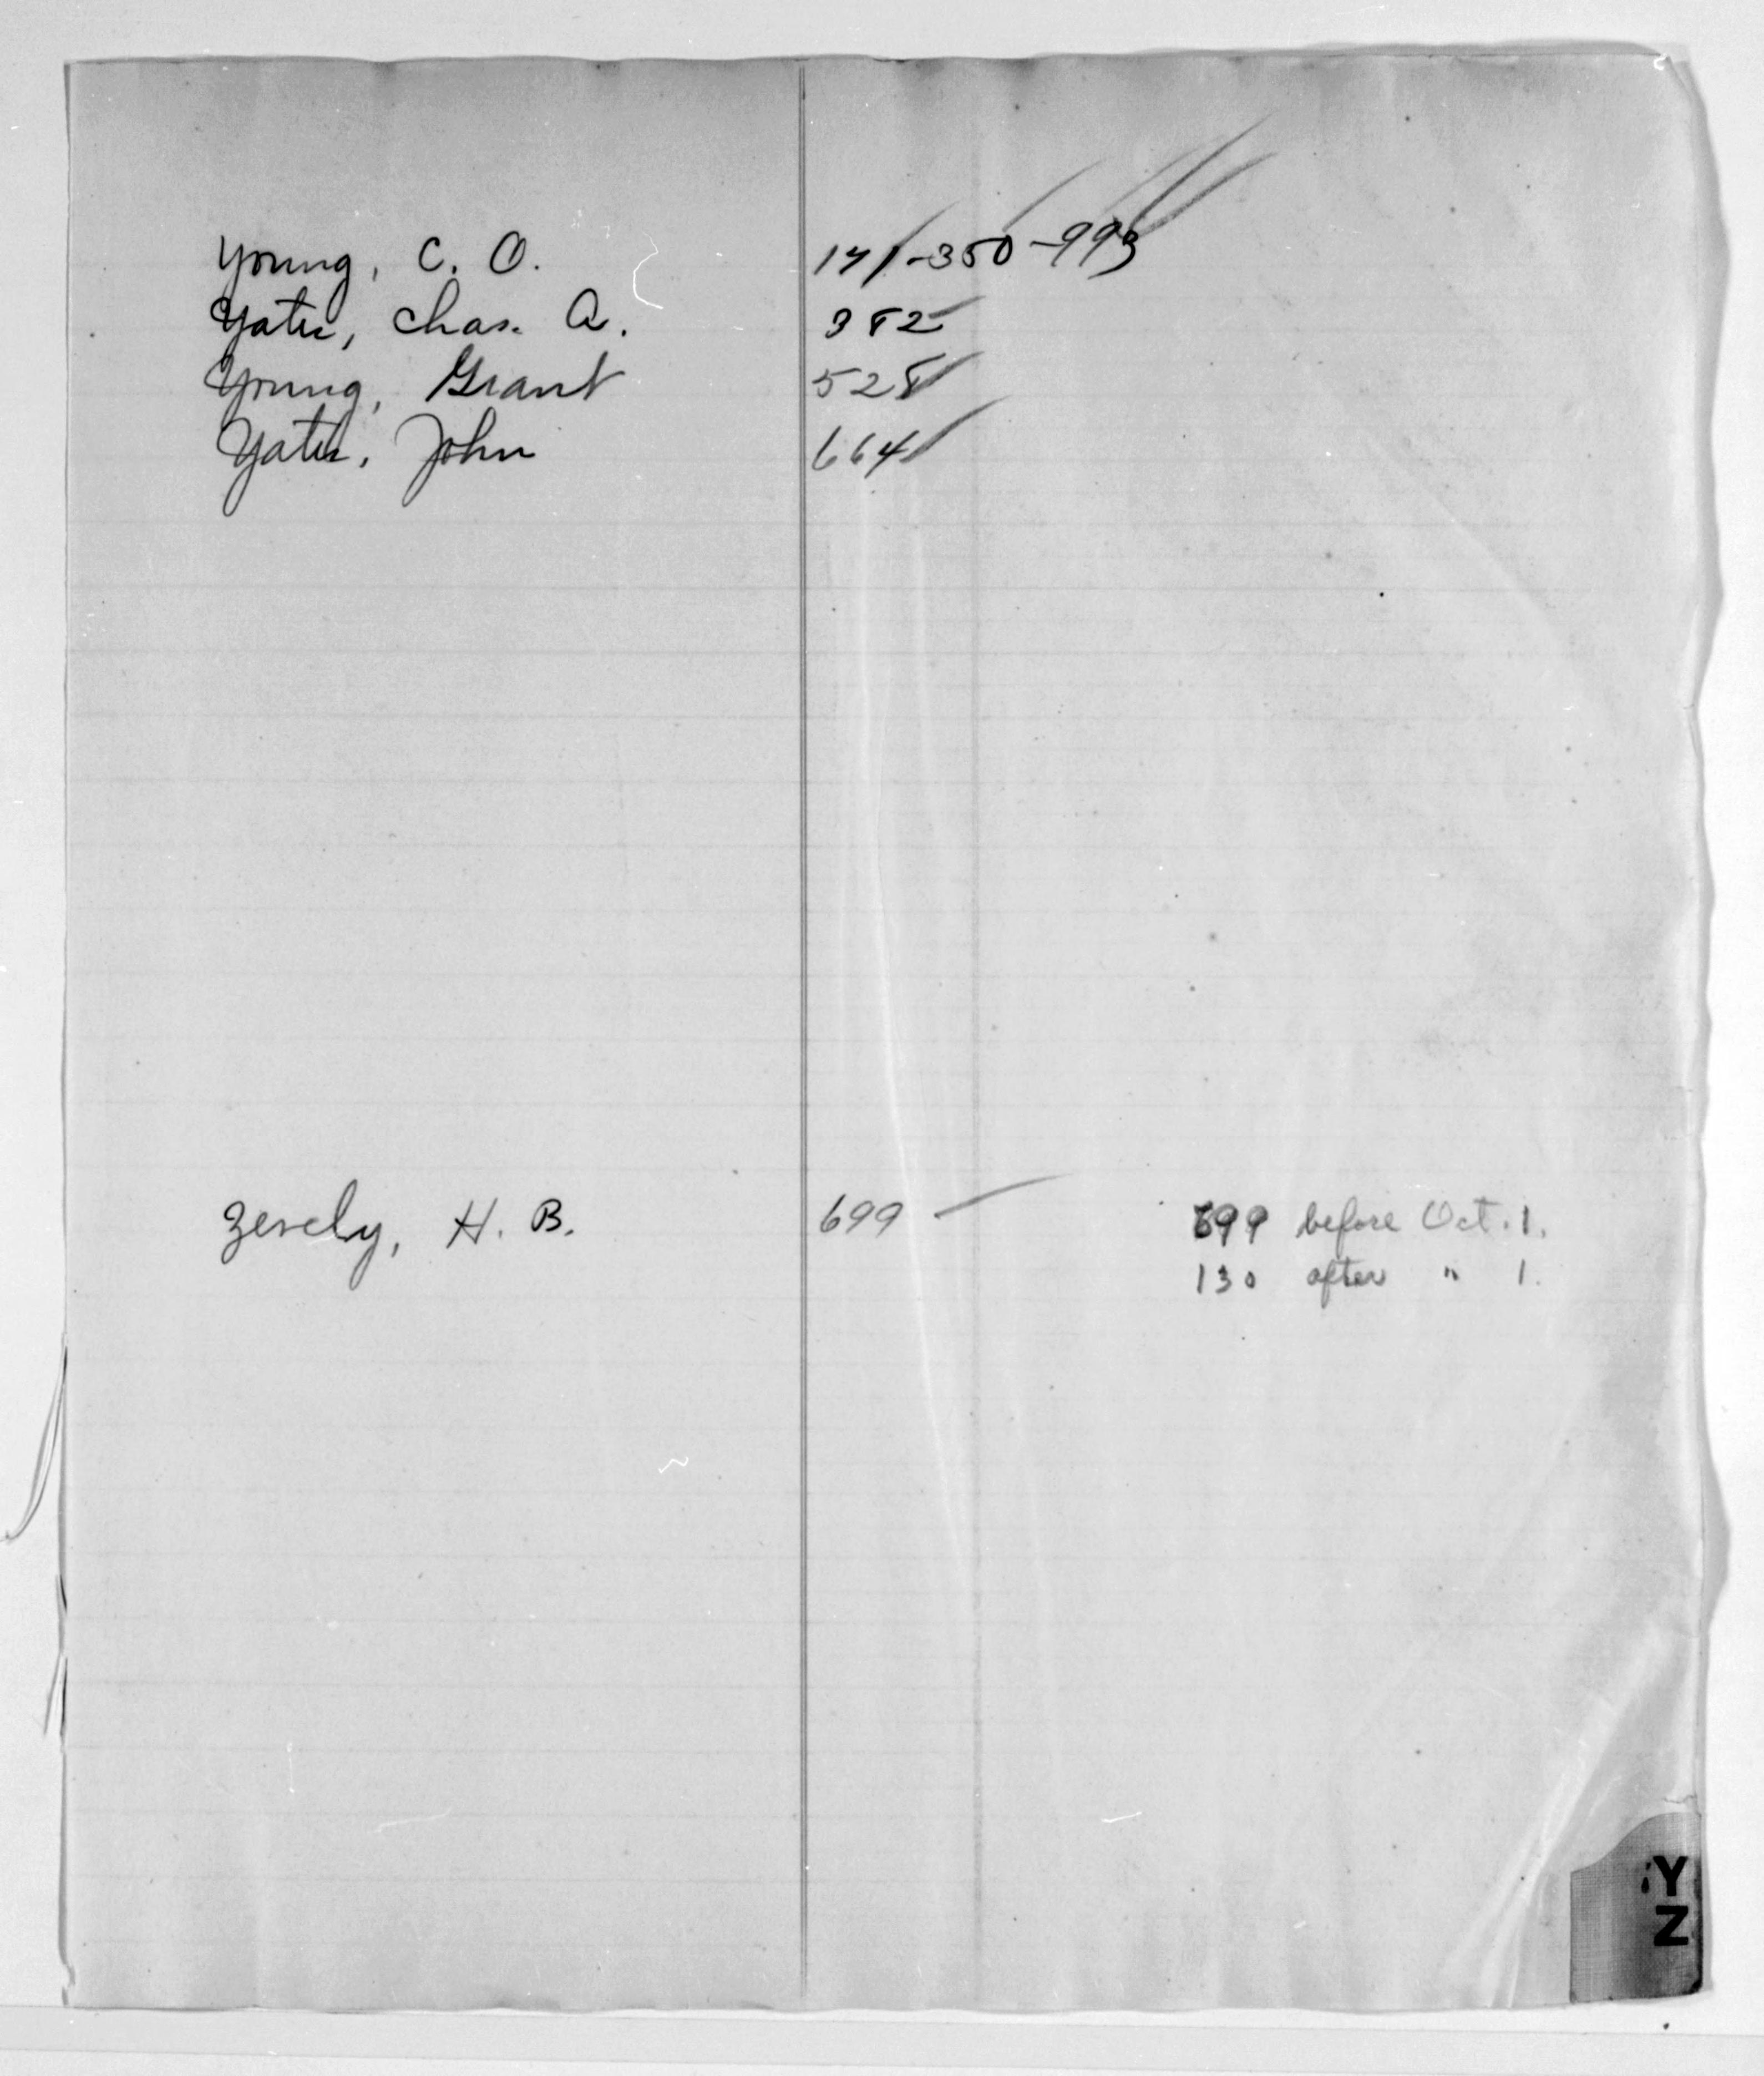 Young, C. O. 171-350-993
Yates, Chas. A. 382
Young, Grant 528
Yates, John 664
Zevely, H. B. 699 699 before Oct. 1.
130 after " 1.
Y
Z